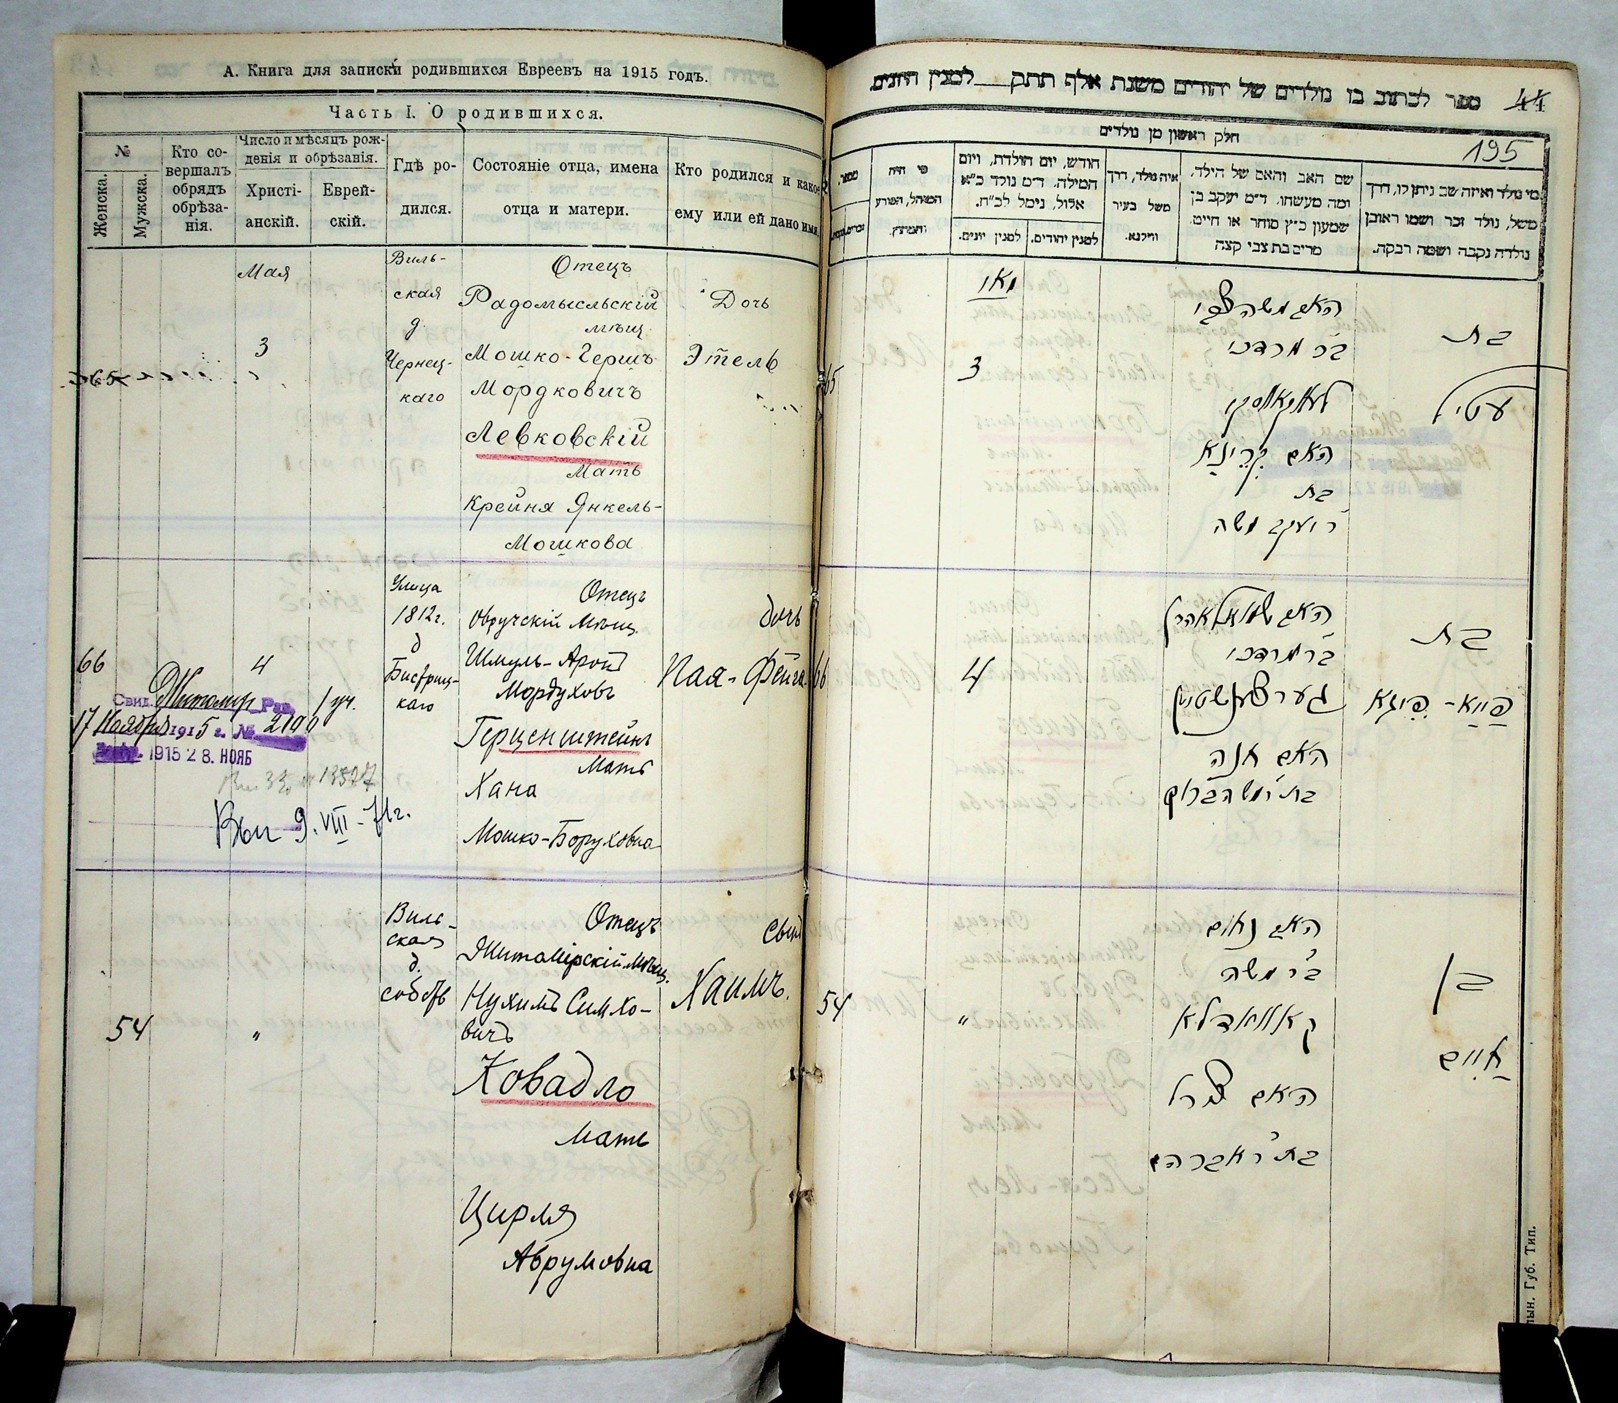 А. Книга для записки родившихся Евреевъ на 1915 годъ.
Часть I. О родившихся.
№
Женска.
Мужска.
Кто со-
вершалъ
обрядъ
обрѣза-
нія.
Число и мѣсяцъ рож-
денія и обрѣзанія.
Христі-
анскій.
Еврей-
скій.
Гдѣ ро-
дился.
Состояніе отца, имена
отца и матери.
Кто родился и какое
ему или ей дано имя.
65
Мая
3
Виль-
ская
д.
Чернец-
каго
Отецъ
Радомысльскій
мѣщ.
Мошко-Гершъ
Мордковичъ
Левковскій
Мать
Крейня Янкель-
Мошкова
Дочь
Этель
66
4
Улица
1812 г.
д
Бистриц-
каго
Отецъ
Овручскій Мѣщ.
Шмуль-Аронъ
Мордуховъ
Герценштейнъ
Мать
Хана
Мошко-Боруховна
дочь
Пая-Фейга
Свид. Житомир. Рав.
17 Ноября 1915 г. №
1915 28. НОЯБ
9. VIII-71 г.
54
"
Виль-
ская
д.
собств
Отецъ
Житомірскій мѣщ.
Нухимъ Симхо-
вичъ
Ковадло
Мать
Цирля
Аврумовна
Сынъ
Хаимъ.
ספר לכתוב בו נולדים של יהודים משנת אלף תתק לפנין היונים
44
195
חלק ראשון מן נולדים
חודש, יום הולדת, ויום
המילה. ד"מ נולד כ"א
אלול, נימל לכ"ח.
למנין יונים.
למנין יהודים.
איה נולד, דרך
משל בעיר
ווילנא.
שם האב והאם של הילד,
ומה מעשהו. ד"מ יעקב בן
שמעון כ"ץ סוחר או חייט.
מרים בת צבי קצה
מי נולד ואיזה שב ניתן לו, דרך
משל, נולד זכר ושמו ראובן
נולדה נקבה ושמה רבקה.
65
מאי
3
האב משה צבי
ב"ר מרדכי
לעווקאווסקי
האם קריינא
בת
ר' יעקב משה
בת
עטיל
66
4
האב שמואל אהרן
ב"ר מרדכי
גערצענשטיין
האם חנה
בת ר' משה ברוך
בת
פייא-פייגא
54
"
האב נחום
ב"ר שמחה
קאוואדלא
האם צירל
בת ר' אברהם
בן
חיים
Губ. Тип.